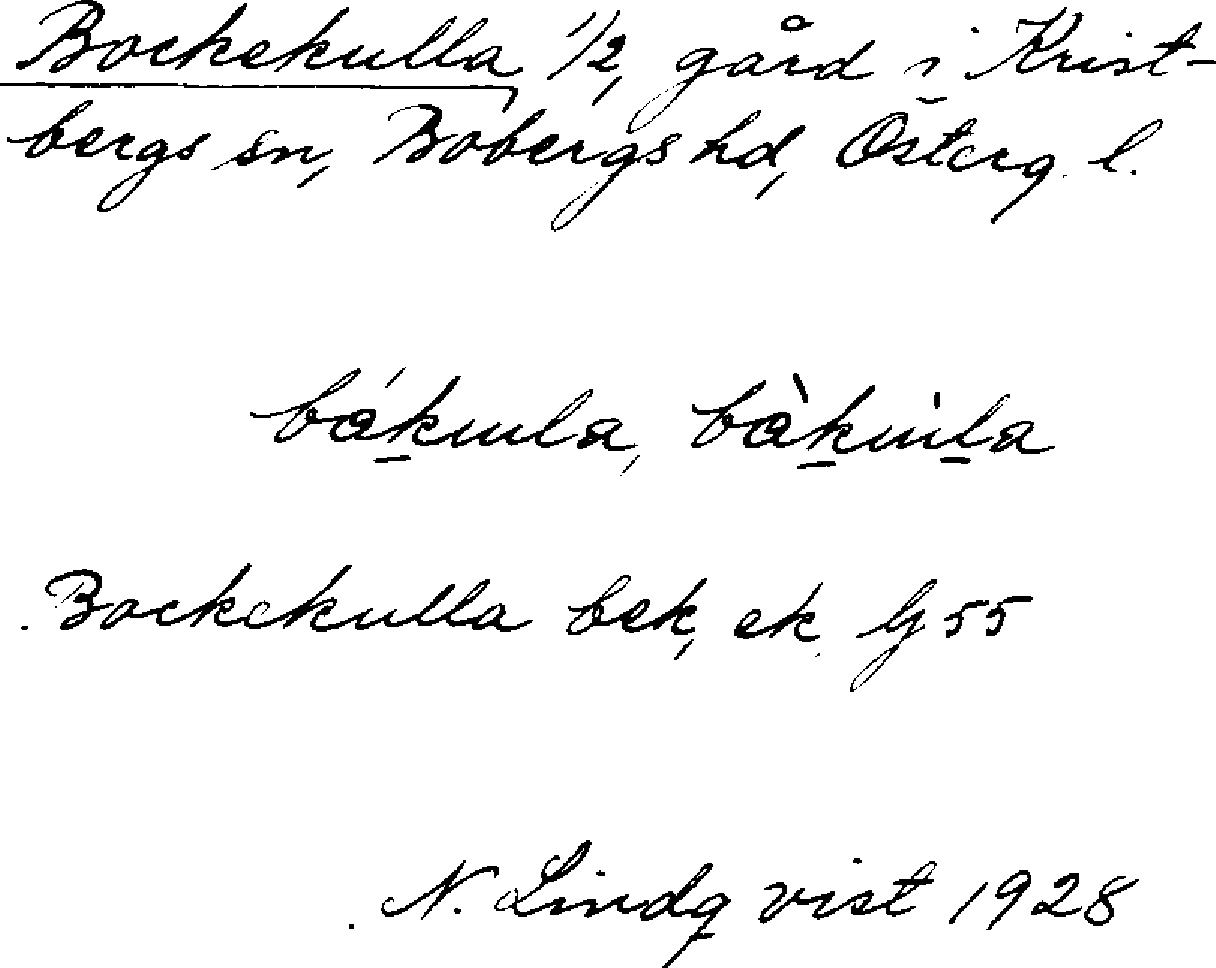 Bockekulla, 1/2, gård i Krist-
bergs sn, Bobergs hd, Österg. l.
bákula, bàkùla
Bockekulla bek, ek. G 55
N. Lindqvist 1928